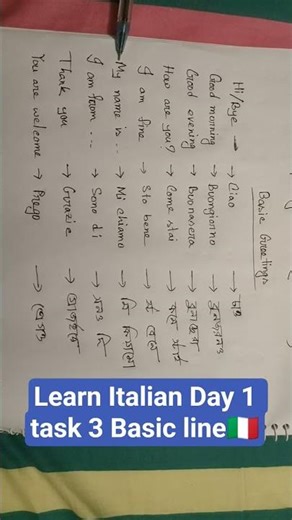 Basic Greetings
Hi/Bye → Ciao → চাও
Good morning → Buongiorno →
Good evening → Buonasera →
How are you? → Come stai →
I am fine → Sto bene →
My name is .. → Mi chiamo →
I am from ... → Sono di → সনও দি
Thank you → Grazie →
You are welcome → Prego →
Learn Italian Day 1
task 3 Basic line🇮🇹